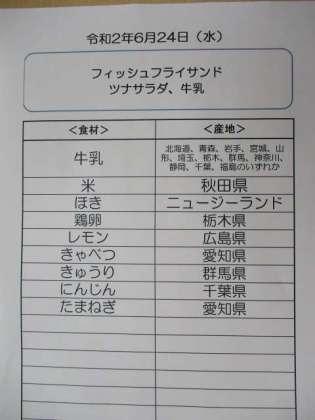 令和2年6月24日（水）
フィッシュフライサンド
ツナサラダ、牛乳
＜食材＞ ＜産地＞
牛乳 北海道、青森、岩手、宮城、山
形、埼玉、栃木、群馬、神奈川、
静岡、千葉、福島のいずれか
米 秋田県
ほき ニュージーランド
鶏卵 栃木県
レモン 広島県
きゃべつ 愛知県
きゅうり 群馬県
にんじん 千葉県
たまねぎ 愛知県